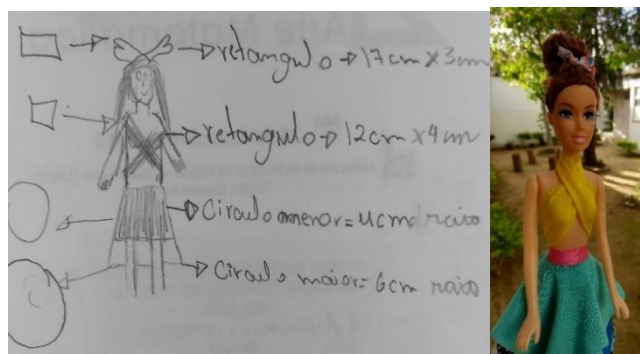 retangulo → 17cm x 3cm
retangulo → 12cm x 4cm
Circulo menor = 4cm raio
Circulo maior = 6cm raio